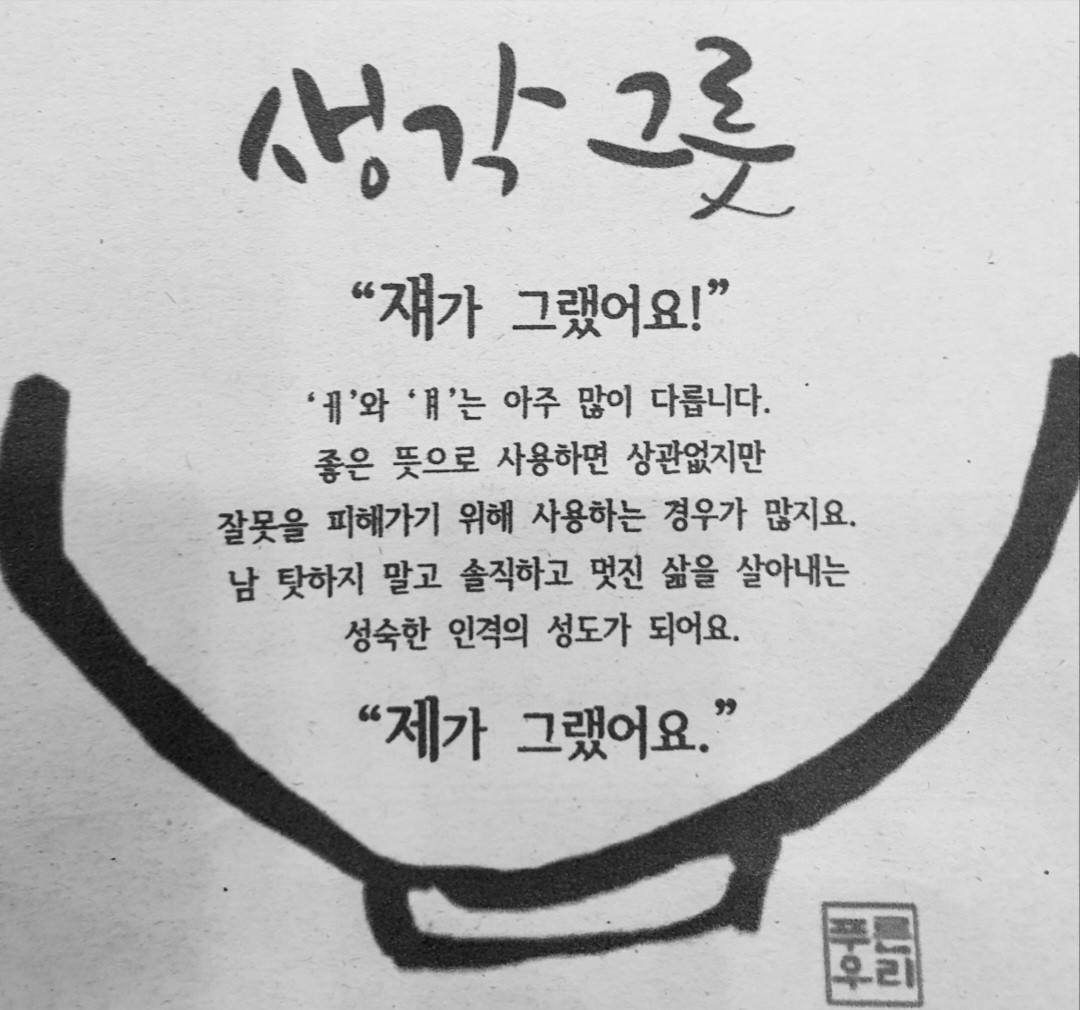 생각그릇
“쟤가 그랬어요!”
‘ㅔ’와 ‘ㅒ’는 아주 많이 다릅니다.
좋은 뜻으로 사용하면 상관없지만
잘못을 피해가기 위해 사용하는 경우가 많지요.
남 탓하지 말고 솔직하고 멋진 삶을 살아내는
성숙한 인격의 성도가 되어요.
“제가 그랬어요.”
푸른
우리